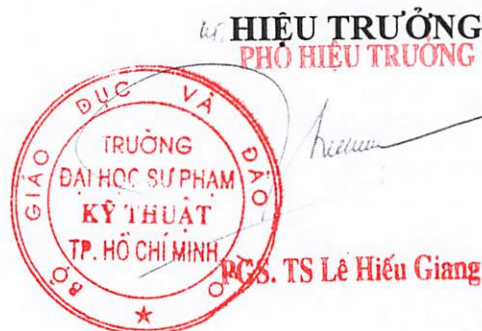 KT. HIỆU TRƯỞNG
PHÓ HIỆU TRƯỞNG
BỘ GIÁO DỤC VÀ ĐÀO TẠO
TRƯỜNG
ĐẠI HỌC SƯ PHẠM
KỸ THUẬT
TP. HỒ CHÍ MINH
★
PGS. TS Lê Hiếu Giang